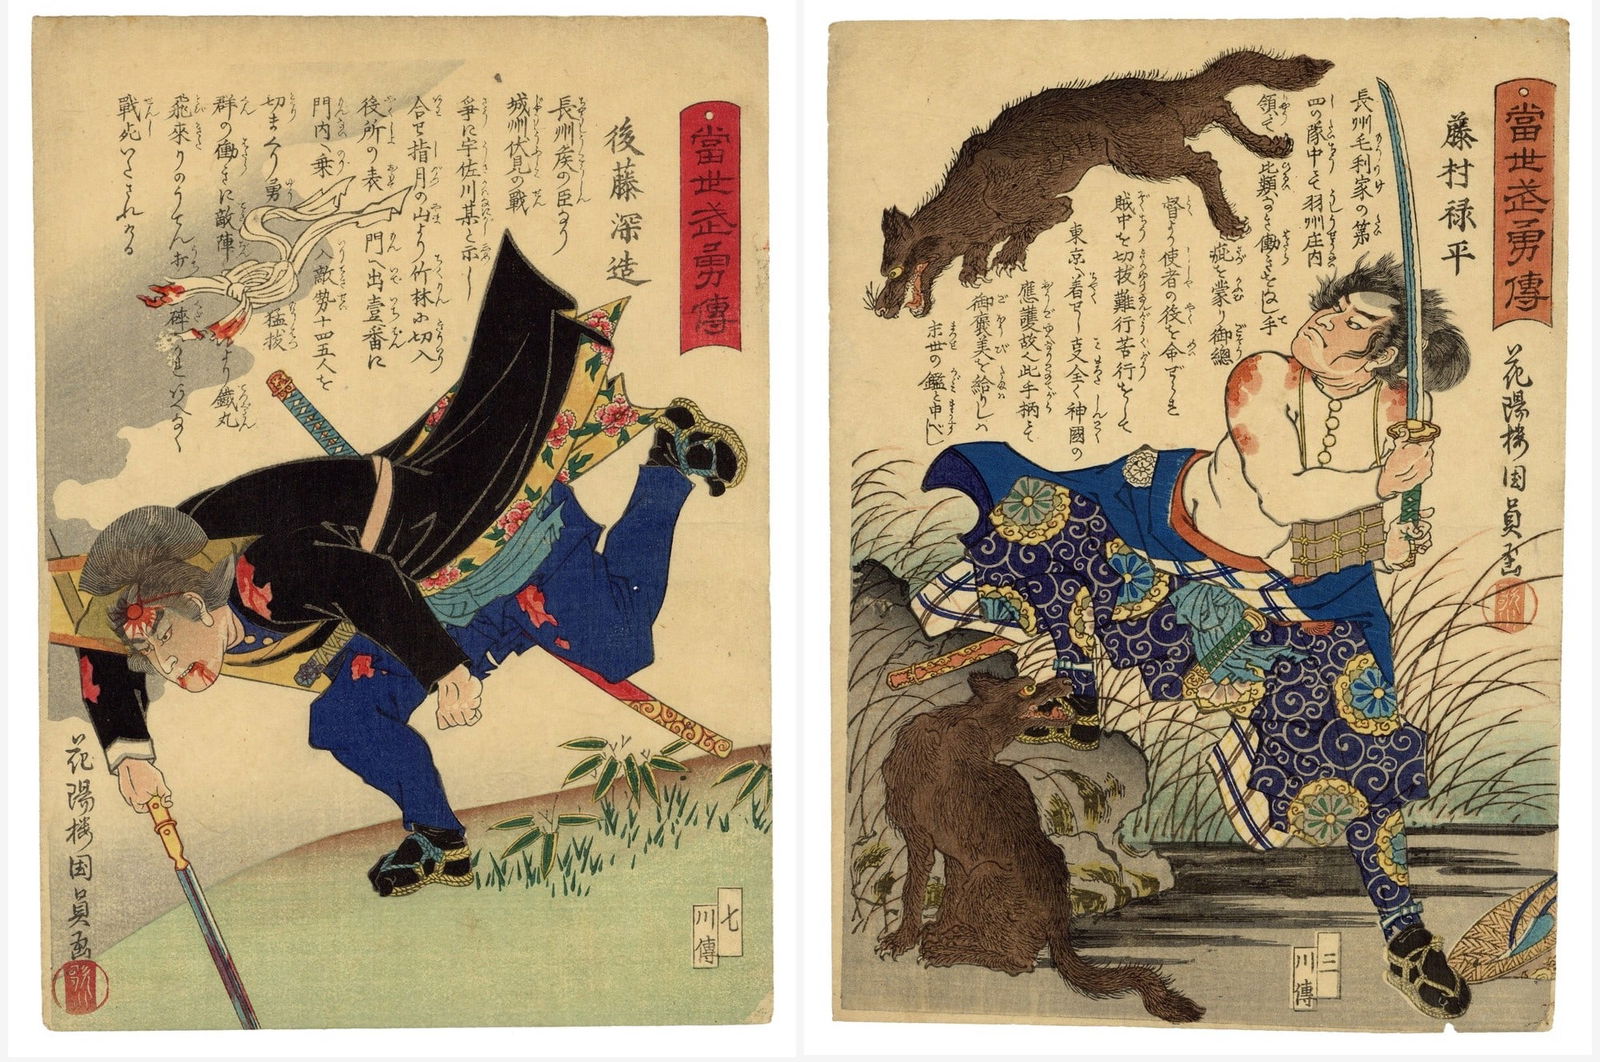 當世武勇傳
後藤深造
長州矦の臣なり
城州伏見の戰
爭に宇佐川某と示し
合せ指月の山より竹林に切入
後所の表門へ出壹番に
門内へ乗入敵勢十四五人を
切まくり勇猛抜
群の働きに敵陣より鐵丸
飛來り
戰死いたされける
花陽楼国員画
七
川傳
當世武勇傳
藤村禄平
長州毛利家の第
四の隊中にて羽州庄内
領にて比類なき働きをなし手
疵を蒙り御總
督より使者の役を命ぜられ
賊中を切抜難行苦行をして
東京へ着せし支全く神國の
應護故へ此手柄にて
御褒美を給りしハ
末世の鑑と申べし
花陽楼国員画
三
川傳